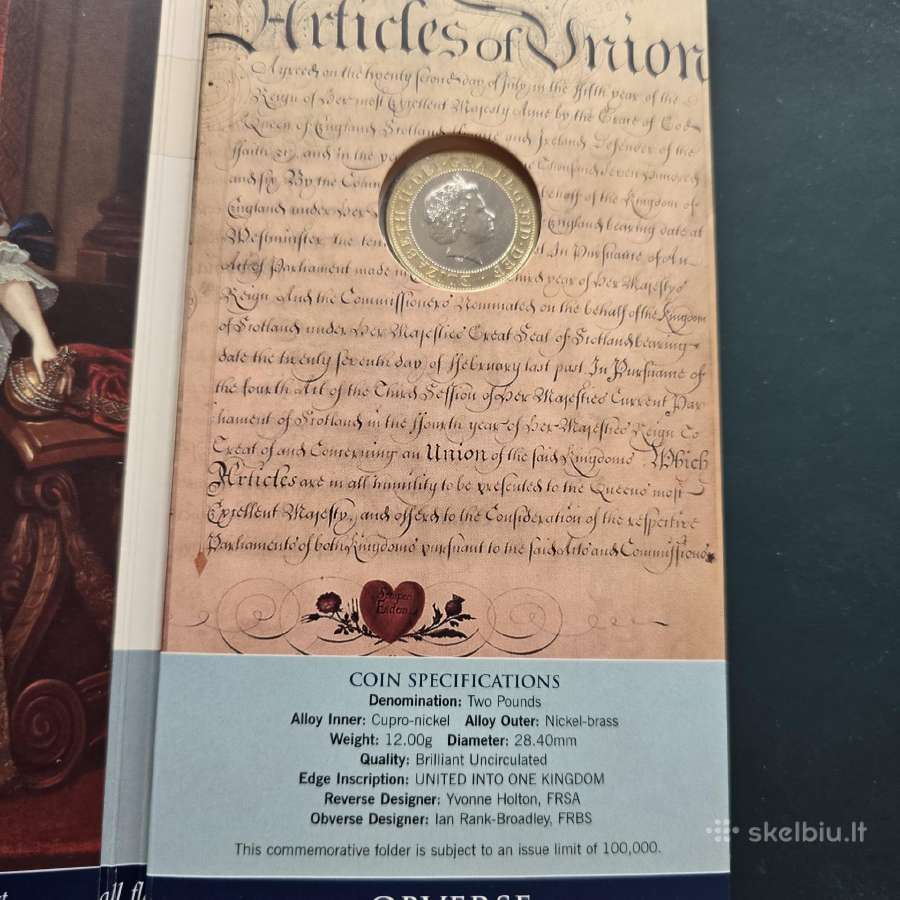 Articles of Union
Agreed on the twenty second day of July in the fifth year of the
Reign of Her most Excellent Majesty Anne by the Grace of God
Queen of England Scotland and Ireland Defender of the
Faith &c and in the One Thousand Seven Hundred
and six By the behalf of the Kingdom of
England under Her England bearing date at
Westminster the In Pursuance of An
Act of Parliament made in third year of Her Majestys
Reign And the Commissioners Nominated on the behalf of the Kingdom
of Scotland under Her Majesties Great Seal of Scotland bearing
date the twenty seventh day of February last past In Pursuance of
the fourth Act of the Third Session of Her Majesties Current Par
liament of Scotland in the fourth year of Her Majesties Reign To
Treat of and Concerning an Union of the said Kingdoms Which
Articles are in all humility to be presented to the Queens most
Excellent Majesty, and offered to the Consideration of the respective
Parliaments of both Kingdoms pursuant to the said Acts and Commissions
Semper
Eadem
COIN SPECIFICATIONS
Denomination: Two Pounds
Alloy Inner: Cupro-nickel Alloy Outer: Nickel-brass
Weight: 12.00g Diameter: 28.40mm
Quality: Brilliant Uncirculated
Edge Inscription: UNITED INTO ONE KINGDOM
Reverse Designer: Yvonne Holton, FRSA
Obverse Designer: Ian Rank-Broadley, FRBS
This commemorative folder is subject to an issue limit of 100,000.
skelbiu.lt
OBVERSE